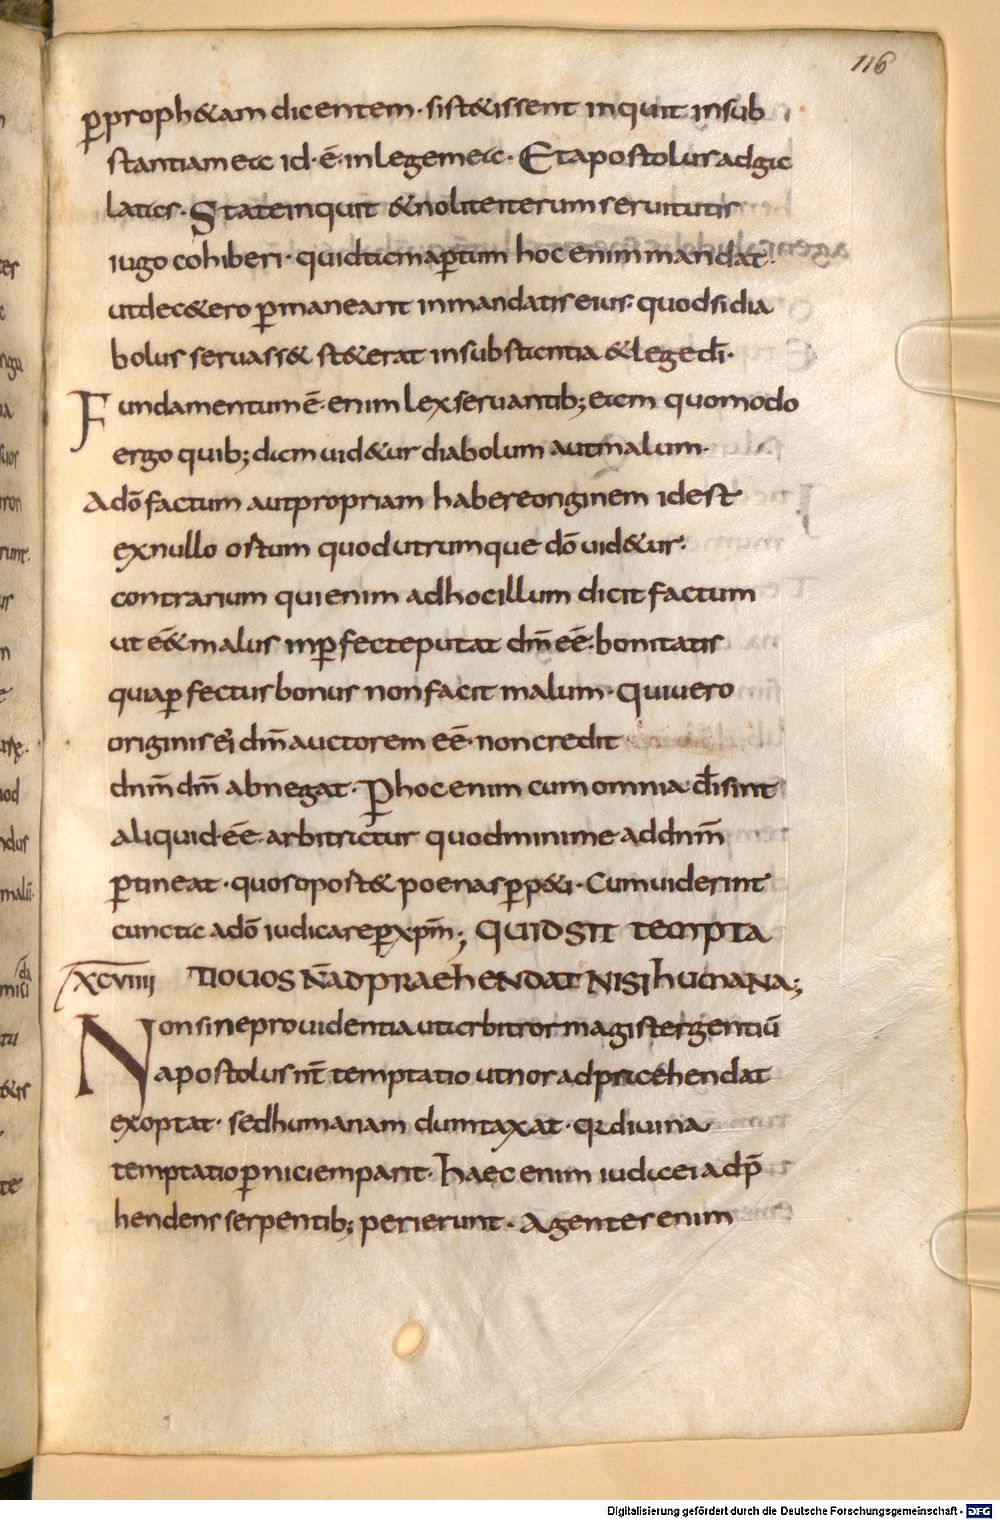 116
p̲proph&am dicentem· sist&issent inquit insub
stantiam ea id·ē·inlegemea· Etapostolusadga
latas· Stateinquit &noliteiterumseruitutis
iugo cohiberi· quidtam aptum hoc enim mandat·
utdec&ero p̲maneant inmandatis eius· quodsi dia
bolus seruass& st&erat insubstantia &lege dī·
Fundamentum ē·enim lex seruantib; eam quomodo
ergo quib;dam uid&ur diabolum autmalum·
Adō factum autpropriam habereoriginem idest
exnullo ostum quodutrumque dō uid&ur·
contrarium quienim adhocillum dicit factum
ut eēt malus inp̲fecteputat dm̄ eē·bonitatis
quiap̲fectus bonus nonfacit malum· Quiuero
originis ei dm̄ auctorem eē·noncredit
dnm̄ dm̄ abnegat· P̲hoc enim cum omnia dī sint
aliquid·eē·arbitratur quodminime addnm̄
p̲tineat·quos opost& poenasp̲p&i·Cumuiderint
cuncta adō iudicarep̲xpm̄; QUID SIT TEMPTA
XCVIIII TIO UOS N̄ADPRAEHENDAT NISI HUMANA;
Nonsineprouidentia utarbitror magistergentiū
apostolus n̄t temptatio utnos adpraehendat
exoptat· sedhumanam dumtaxat·qr̄diuina
temptatio p̲niciemparit· haec enim iudaeis adp̄
hendens serpentib; perierunt· Agentes enim
Digitalisierung gefördert durch die Deutsche Forschungsgemeinschaft - DFG